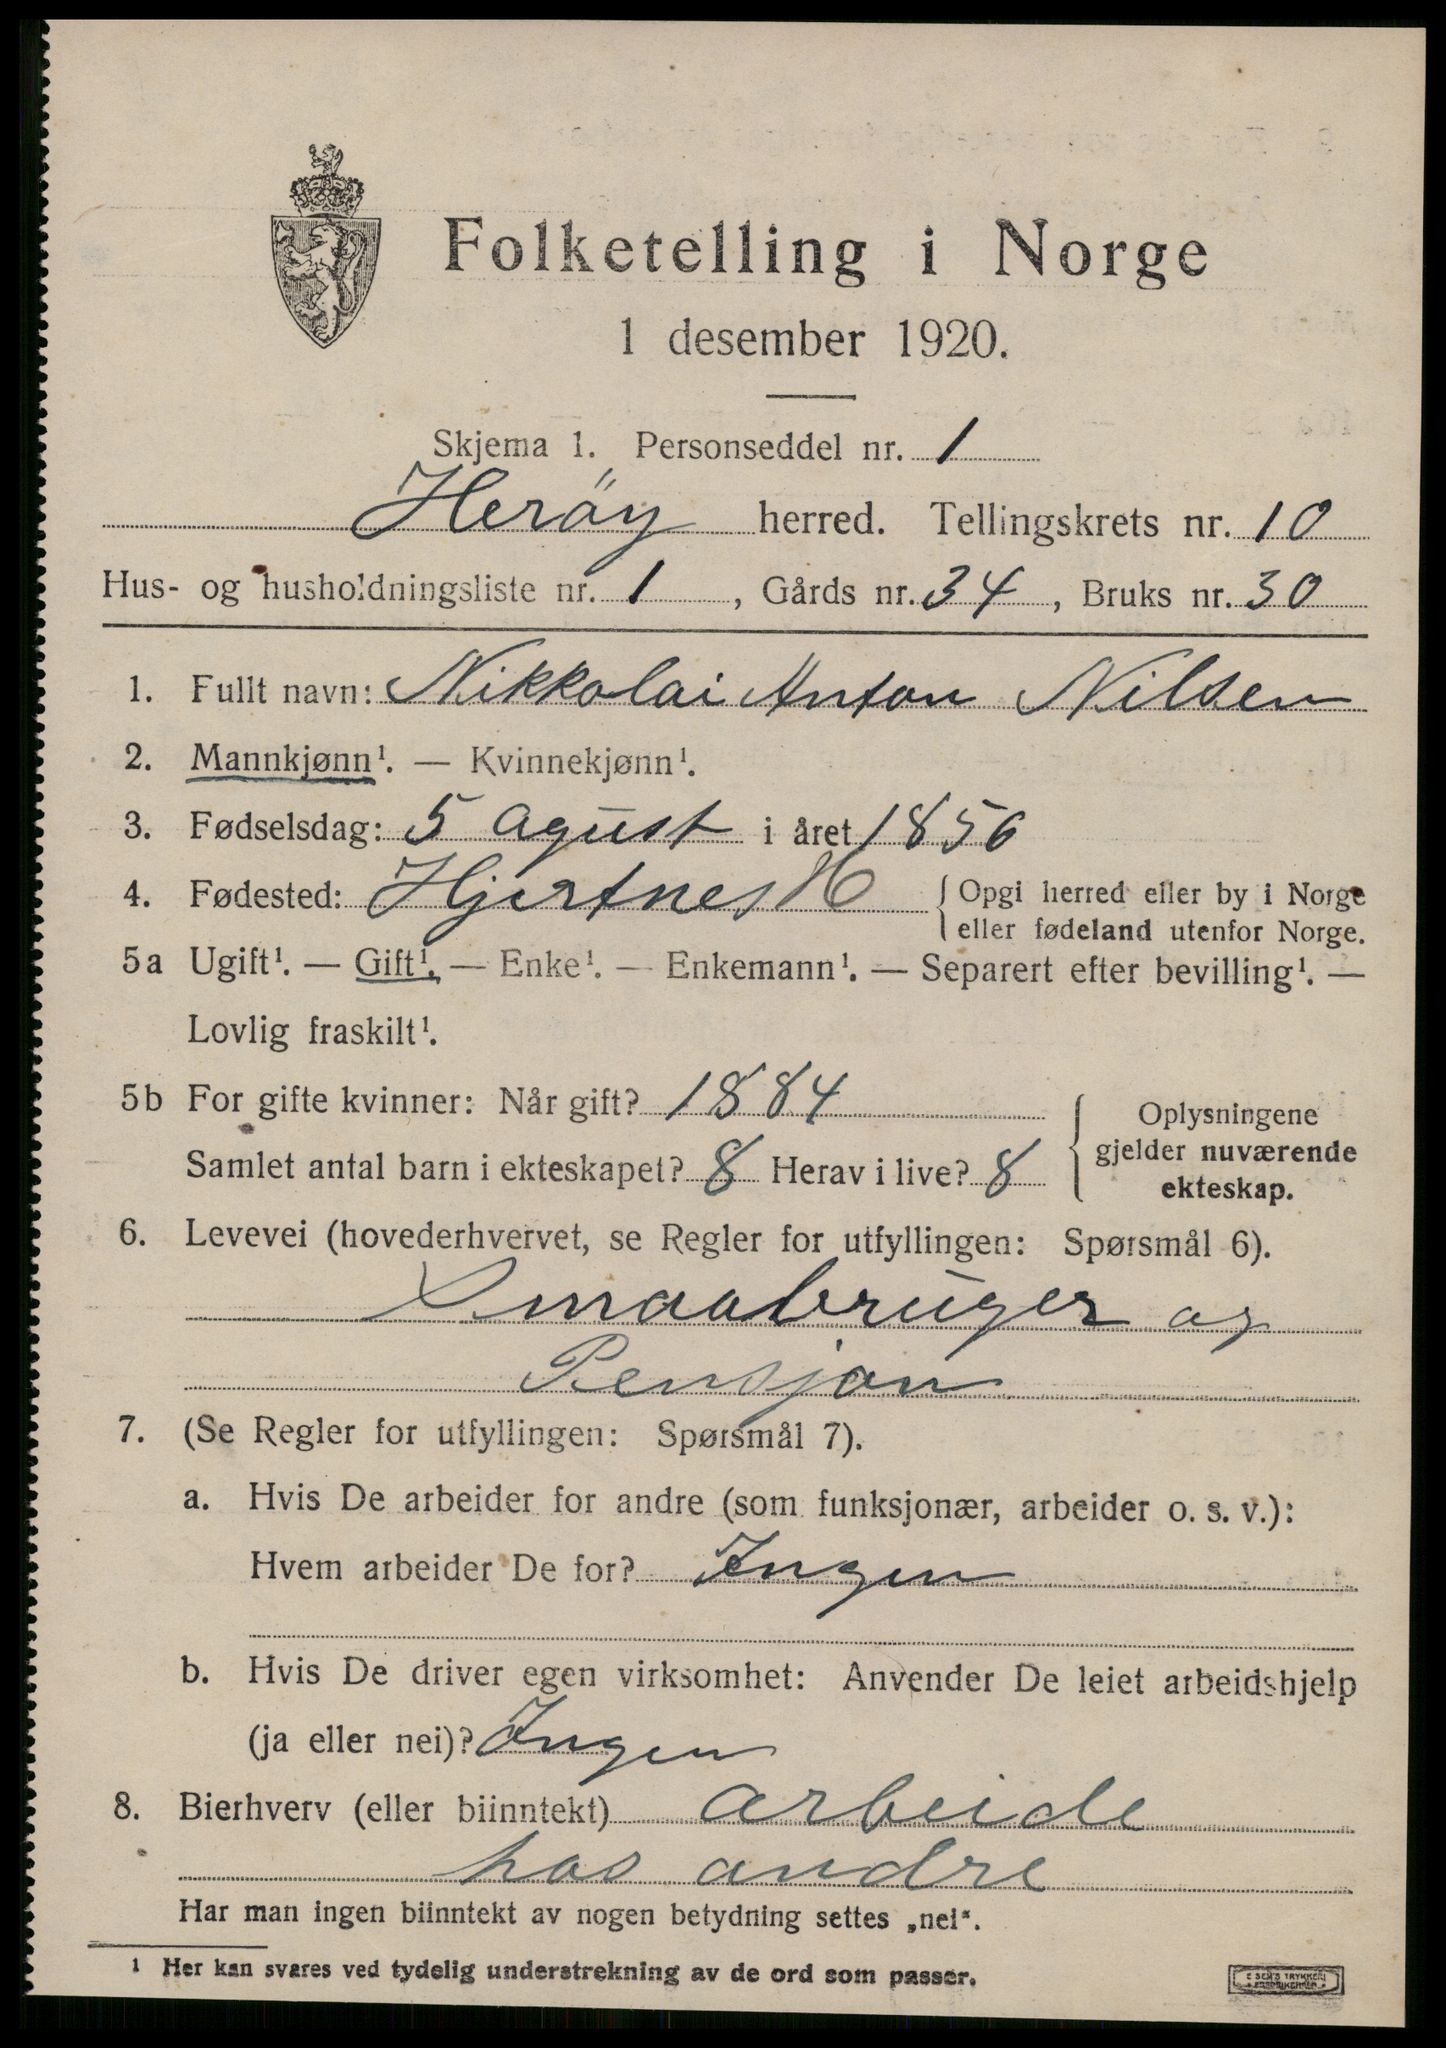 Folketelling i Norge
1 desember 1920.
Skjema 1. Personseddel nr. 1
Herøy herred. Tellingskrets nr. 10
Hus- og husholdningsliste nr. 1, Gårds nr. 34, Bruks nr. 30
1. Fullt navn: Nikkolai Anton Nilsen
2. Mannkjønn¹. — Kvinnekjønn¹.
3. Fødselsdag: 5 agust i året 1856
4. Fødested: Hjertnes H { Opgi herred eller by i Norge
eller fødeland utenfor Norge.
5a Ugift¹. — Gift¹. — Enke¹. — Enkemann¹. — Separert efter bevilling¹. —
Lovlig fraskilt¹.
5b For gifte kvinner: Når gift? 1884
Samlet antal barn i ekteskapet? 8 Herav i live? 8
{ Oplysningene
gjelder nuværende
ekteskap.
6. Levevei (hovederhvervet, se Regler for utfyllingen: Spørsmål 6).
Smaabruger og
Pensjon
7. (Se Regler for utfyllingen: Spørsmål 7).
a. Hvis De arbeider for andre (som funksjonær, arbeider o. s. v.):
Hvem arbeider De for? Ingen
b. Hvis De driver egen virksomhet: Anvender De leiet arbeidshjelp
(ja eller nei)? Ingen
8. Bierhverv (eller biinntekt) arbeide
hos andre
Har man ingen biinntekt av nogen betydning settes „nei“.
¹ Her kan svares ved tydelig understrekning av de ord som passer.